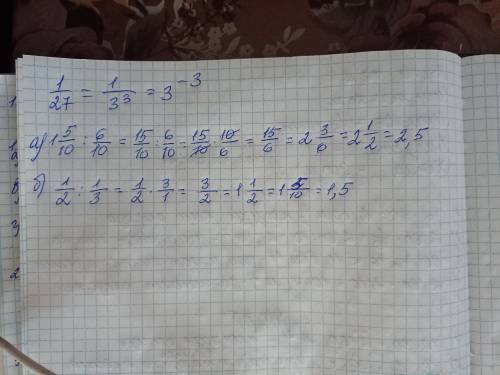 1/27 = 1/3³ = 3⁻³
а) 1 5/10 : 6/10 = 15/10 : 6/10 = 15/10 · 10/6 = 15/6 = 2 3/6 = 2 1/2 = 2,5
б) 1/2 : 1/3 = 1/2 · 3/1 = 3/2 = 1 1/2 = 1 5/10 = 1,5